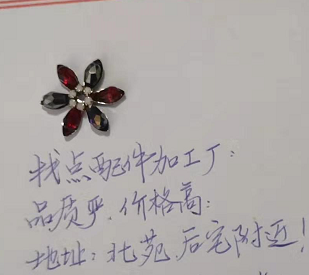 找点配件加工厂:
品质严，价格高:
地址:北苑，后宅附近!